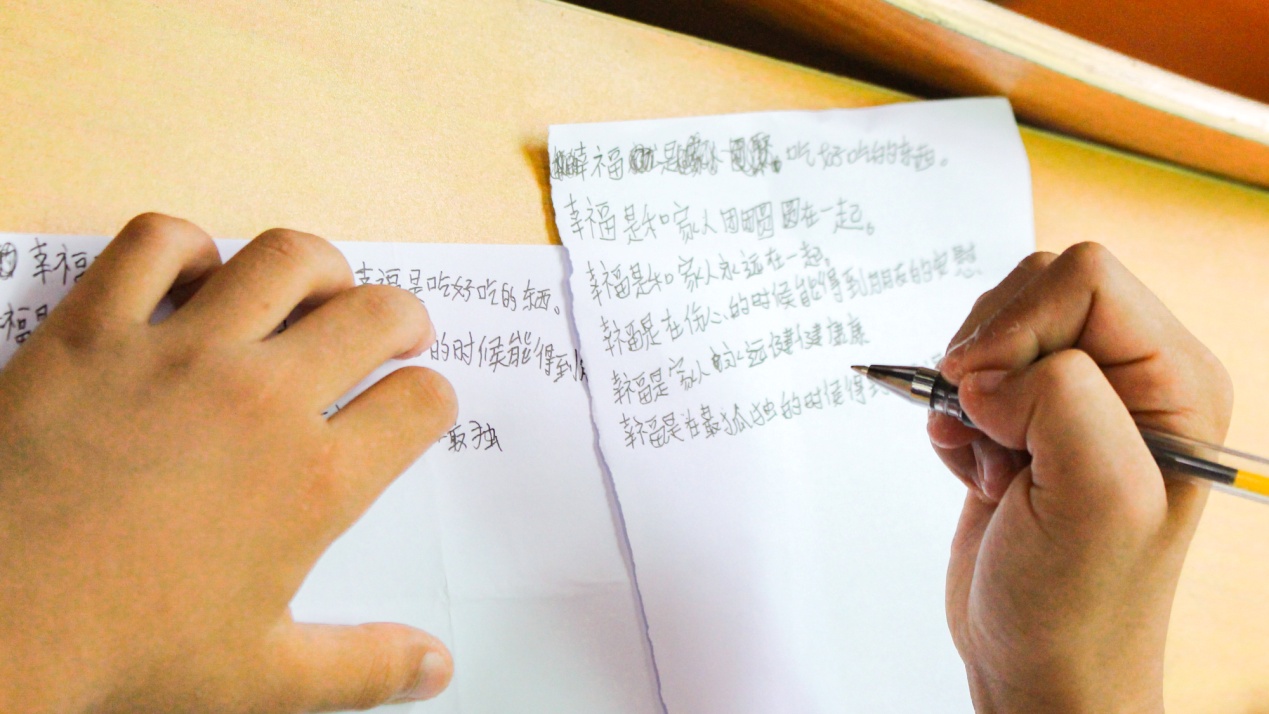 幸福
幸福是吃好吃的东西。
的时候能得到
最独
幸福是吃好吃的东西。
幸福是和家人团圆在一起。
幸福是和家人永远在一起。
幸福是在伤心的时候能得到朋友的安慰
幸福是家人永远健健康康
幸福是在最孤独的时候得到